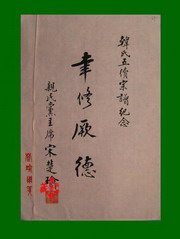 韓氏五修宗譜紀念
聿修厥德
親民黨主席宋楚瑜